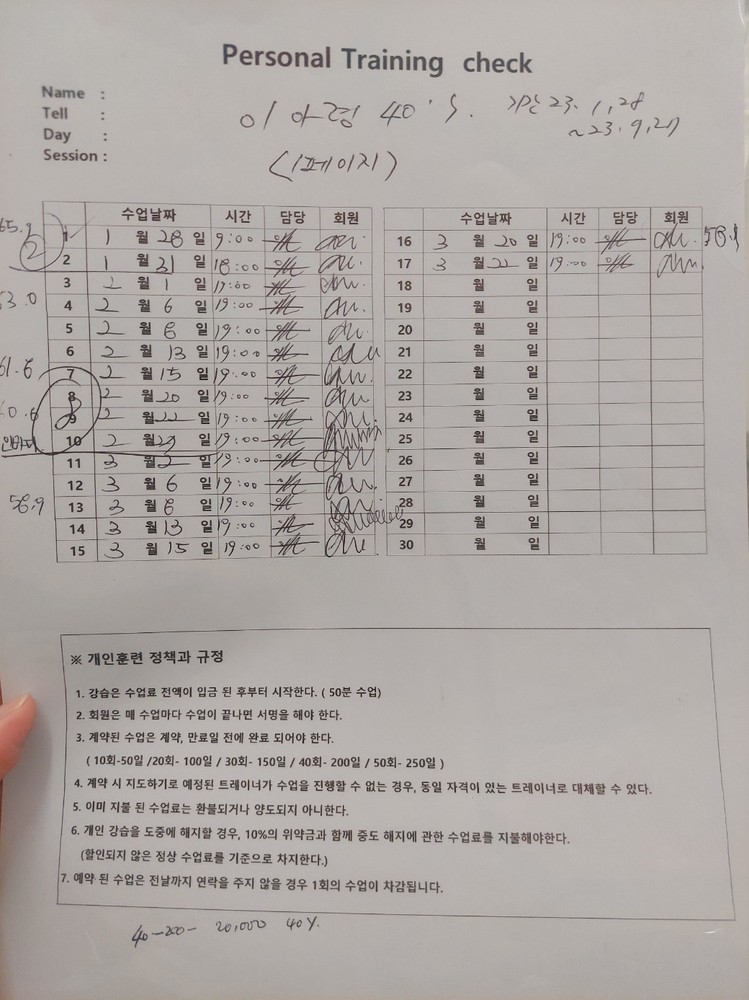 Personal Training check
Name :
Tell :
Day :
Session :
이아령 40's. 기간 23.1.28
~23.9.27
(1페이지)
수업날짜 시간 담당 회원
1 1 월 28 일 9:00
2 1 월 31 일 18:00
3 2 월 1 일 19:00
4 2 월 6 일 19:00
5 2 월 8 일 19:00
6 2 월 13 일 19:00
7 2 월 15 일 19:00
8 2 월 20 일 19:00
9 2 월 22 일 19:00
10 2 월 27 일 19:00
11 3 월 2 일 19:00
12 3 월 6 일 19:00
13 3 월 8 일 19:00
14 3 월 13 일 19:00
15 3 월 15 일 19:00
2
8
3.0
56.9
수업날짜 시간 담당 회원
16 3 월 20 일 19:00
17 3 월 22 일 19:00
18 월 일
19 월 일
20 월 일
21 월 일
22 월 일
23 월 일
24 월 일
25 월 일
26 월 일
27 월 일
28 월 일
29 월 일
30 월 일
※ 개인훈련 정책과 규정
1. 강습은 수업료 전액이 입금 된 후부터 시작한다. ( 50분 수업)
2. 회원은 매 수업마다 수업이 끝나면 서명을 해야 한다.
3. 계약된 수업은 계약, 만료일 전에 완료 되어야 한다.
( 10회-50일 /20회- 100일 / 30회- 150일 / 40회- 200일 / 50회- 250일 )
4. 계약 시 지도하기로 예정된 트레이너가 수업을 진행할 수 없는 경우, 동일 자격이 있는 트레이너로 대체할 수 있다.
5. 이미 지불 된 수업료는 환불되거나 양도되지 아니한다.
6. 개인 강습을 도중에 해지할 경우, 10%의 위약금과 함께 중도 해지에 관한 수업료를 지불해야한다.
(할인되지 않은 정상 수업료를 기준으로 차지한다.)
7. 예약 된 수업은 전날까지 연락을 주지 않을 경우 1회의 수업이 차감됩니다.
40-200- 20,000 40%.